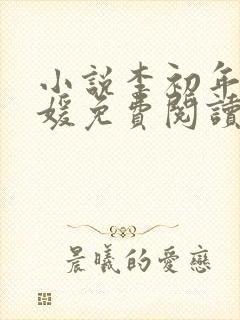 小說李初年
媛免費閱讀
晨曦的愛戀